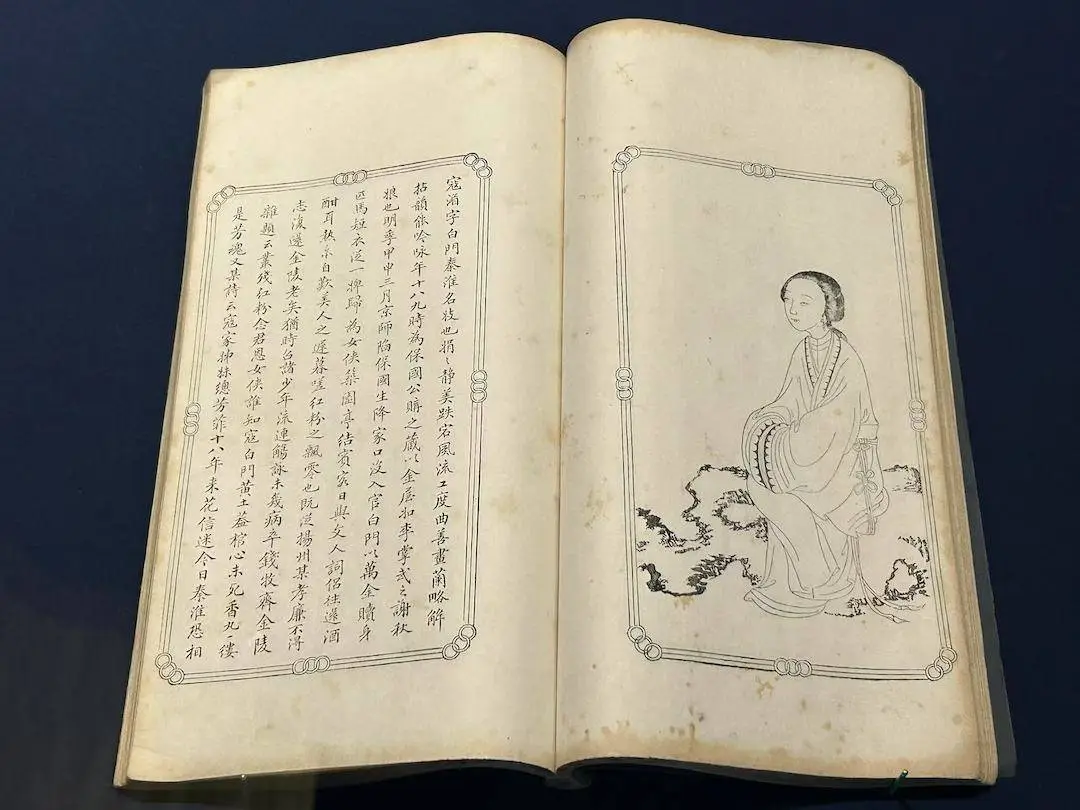 寇湄字白門秦淮名妓也娟〻静美跌宕風流工度曲善畫蘭略解
拈韻能吟咏年十八九時為保國公購之藏以金屋如李掌武之謝秋
娘也明季甲申三月京師陷保國生降家口没入官白門以萬金贖身
匹馬短衣從一婢歸為女俠築園亭結賓客日與文人詞侶往還酒
酣耳熱亦自歎美人之遲暮嗟紅粉之飄零也既從揚州某孝廉不得
志復還金陵老矣猶時台諸少年流連觴詠未幾病卒錢牧齋金陵
雜題云叢殘紅粉念君恩女俠誰知寇白門黄土蓋棺心未死香丸一縷
是芳魂又某詩云寇家姊妹總芳菲十八年來花信迷今日秦淮恐相